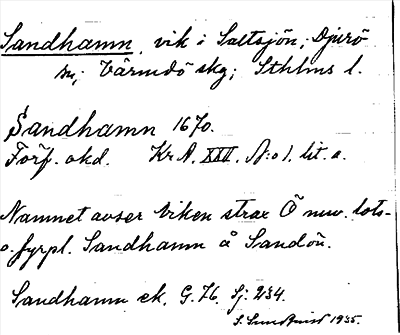 Sandhamn, vik i Saltsjön, Djurö
sn; Värmdö skg; Sthlms l.
Sandhamn 1670.
Förf. okd. Kr A. XXV. N:o 1. lit. a.
Namnet avser viken strax Ö nuv. lots-
o. fyrpl. Sandhamn å Sandön.
Sandhamn ek. G. 76. Sj. 234.
S. Sundquist 1935.